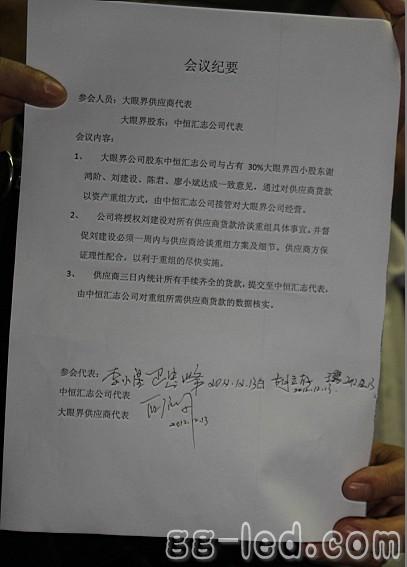 会议纪要
参会人员：大眼界供应商代表
大眼界股东：中恒汇志公司代表
会议内容：
1、 大眼界公司股东中恒汇志公司与占有 30%大眼界四小股东谢
鸿阶、刘建设、陈君、廖小斌达成一致意见，通过对供应商货款
以资产重组方式，由中恒汇志公司接管对大眼界公司经营。
2、 公司将授权刘建设对所有供应商货款洽谈重组具体事宜，并督
促刘建设必须一周内与供应商洽谈重组方案及细节。供应商方保
证理性配合，以利于重组的尽快实施。
3、 供应商三日内统计所有手续齐全的货款，提交至中恒汇志代表，
由中恒汇志公司对重组所需供应商货款的数据核实。
参会代表： 2012.12.13日 2012.12.13
中恒汇志公司代表
大眼界供应商代表
2012.12.13
gg-led.com